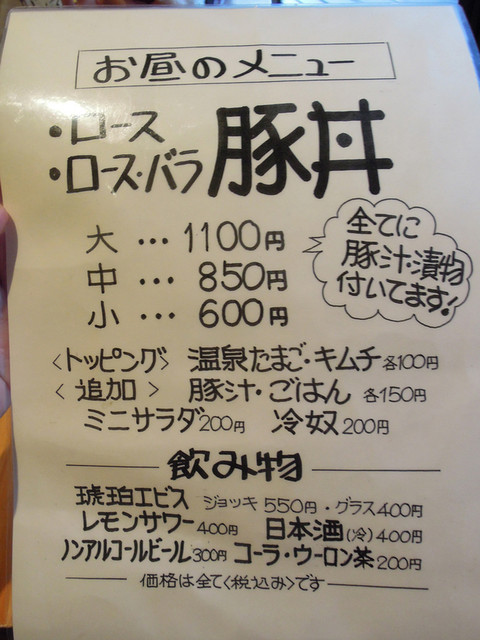 お昼のメニュー
・ロース
・ロース・バラ 豚丼
大 … 1100円
中 … 850円
小 … 600円
全てに
豚汁・漬物
付いてます!
〈トッピング〉 温泉たまご・キムチ 各100円
〈 追加 〉 豚汁・ごはん 各150円
ミニサラダ 200円 冷奴 200円
飲み物
琥珀エビス ジョッキ 550円・グラス 400円
レモンサワー 400円 日本酒(冷) 400円
ノンアルコールビール 300円 コーラ・ウーロン茶 200円
価格は全て〈税込み〉です